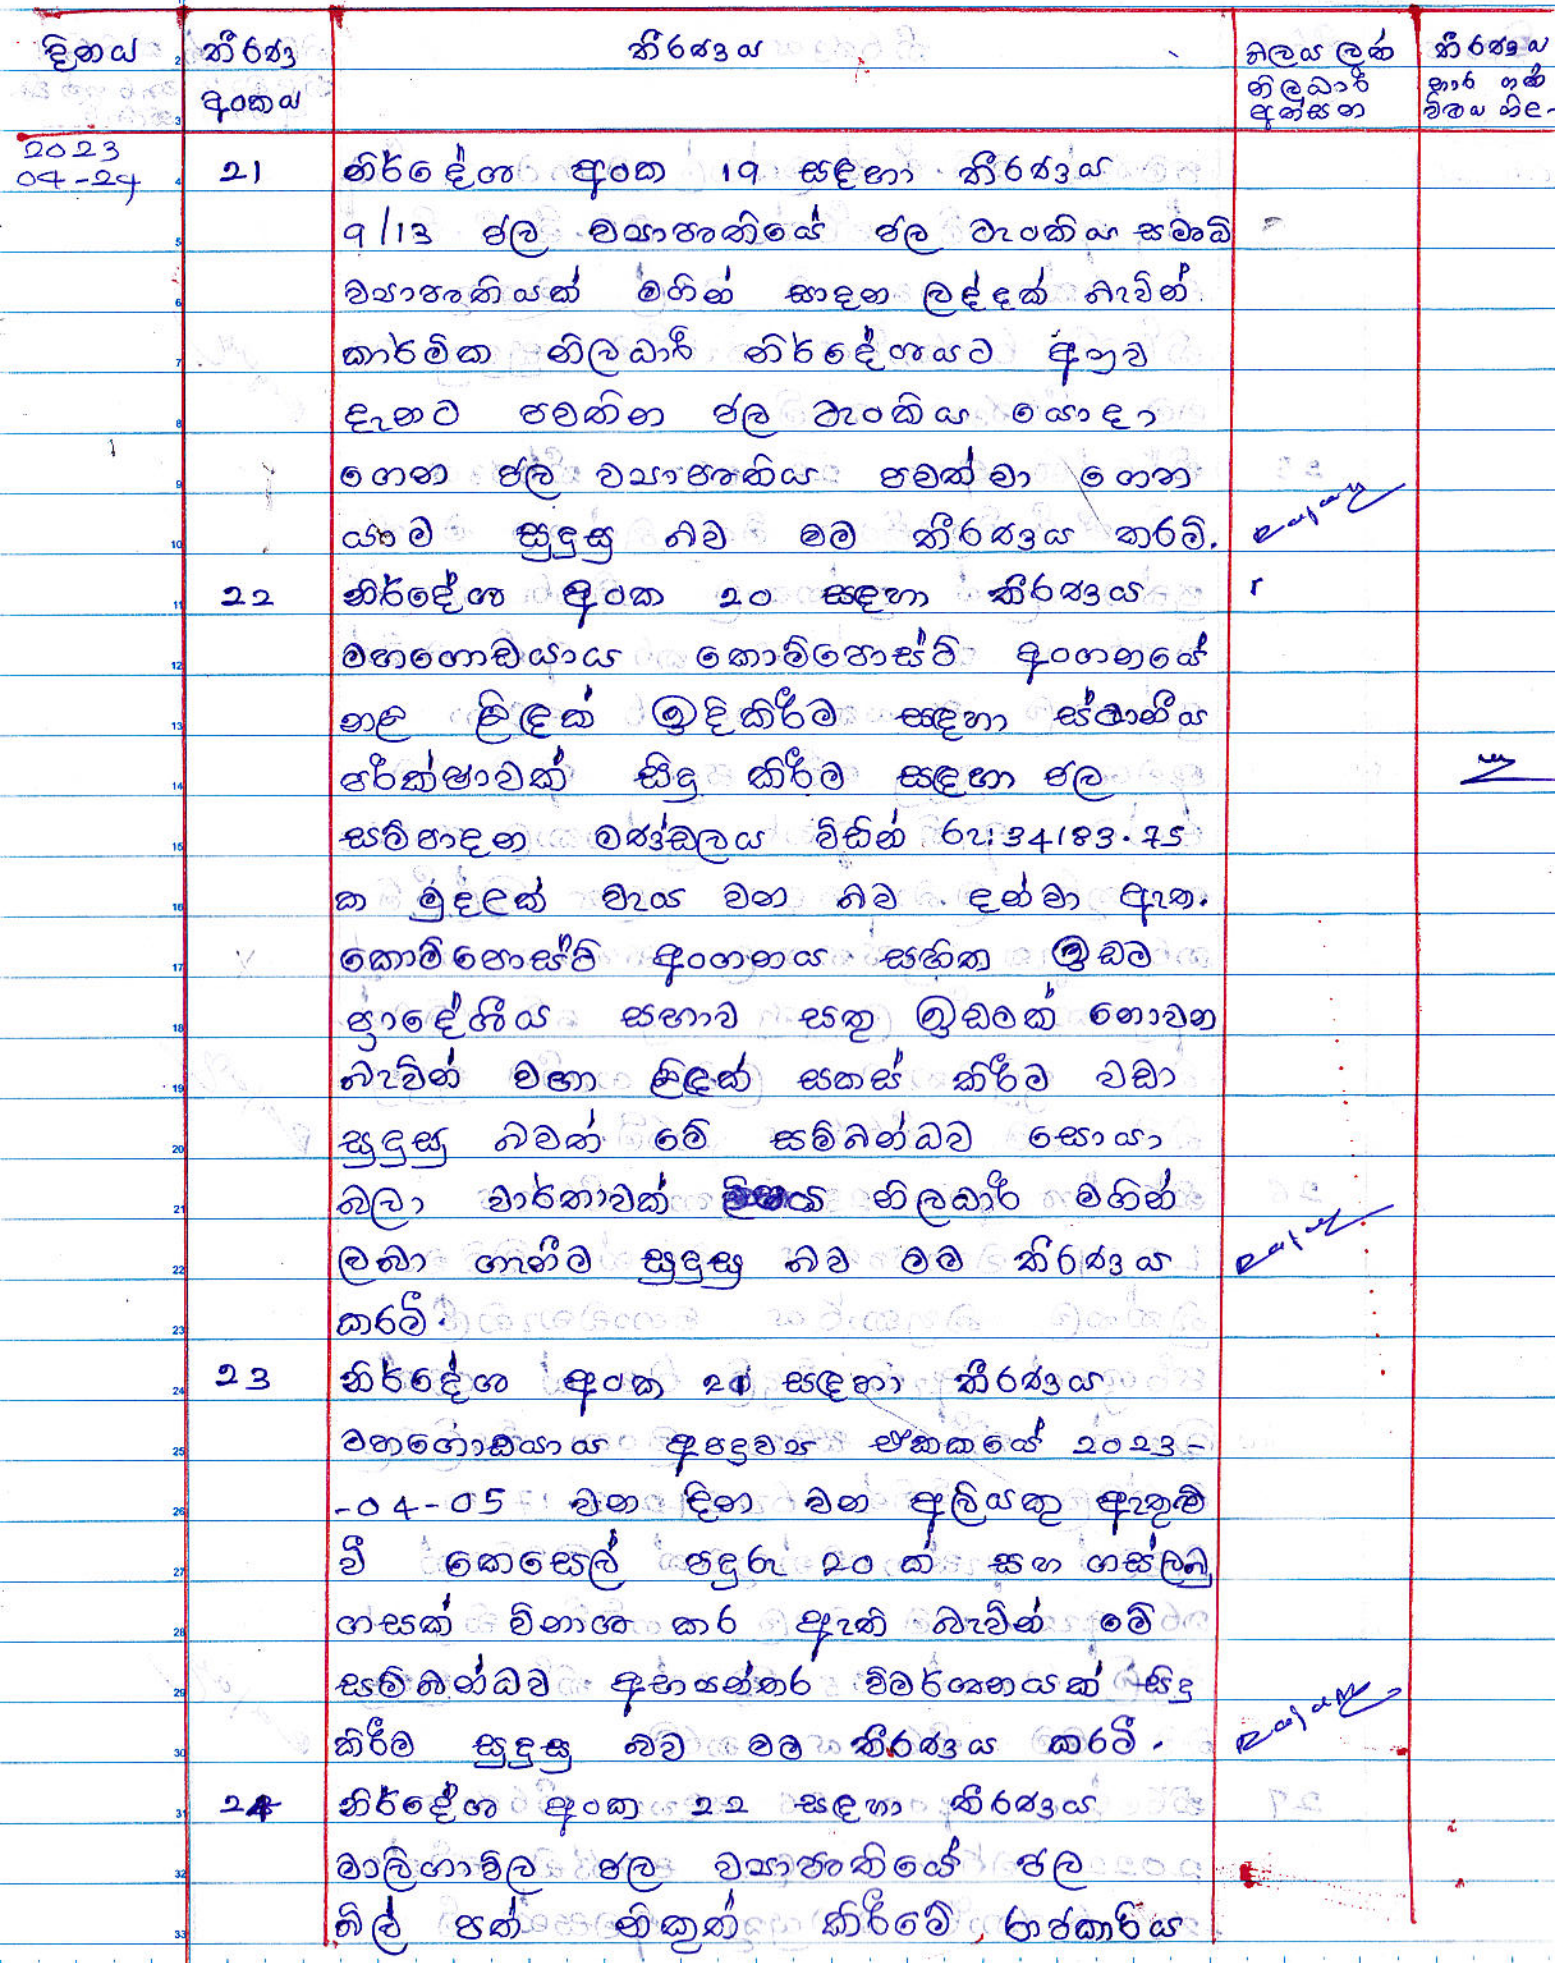 දිනය තීරණ තීරණය බලය ලත් තීරණය
අංකය නිලධාරී භාර ගත්
අත්සන විෂය නිල-
2023
04-24 21 නිර්දේශ අංක 19 සඳහා තීරණය
9/13 ජල ව්‍යාපෘතියේ ජල ටැංකිය සමෘධි
ව්‍යාපෘතියක් මගින් සාදන ලද්දක් බැවින්
කාර්මික නිලධාරී නිර්දේශයට අනුව
දැනට පවතින ජල ටැංකිය යොදා
ගෙන ජල ව්‍යාපෘතිය පවත්වා ගෙන
යාම සුදුසු බව මම තීරණය කරමි.
22 නිර්දේශ අංක 20 සඳහා තීරණය
මහගොඩයාය කොම්පොස්ට් අංගනයේ
නල ළිඳක් ඉදිකිරීම සඳහා ස්ථානීය
පරීක්ෂාවක් සිදු කිරීම සඳහා ජල
සම්පාදන මණ්ඩලය විසින් රු: 34183.75
ක මුදලක් වැය වන බව දන්වා ඇත.
කොම්පොස්ට් අංගනය සහිත ඉඩම
ප්‍රාදේශීය සභාව සතු ඉඩමක් නොවන
බැවින් වහා ළිඳක් සකස් කිරීම වඩා
සුදුසු බවත් මේ සම්බන්ධව සොයා
බලා වාර්තාවක් නිලධාරී මගින්
ලබා ගැනීම සුදුසු බව මම තිරණය
කරමි.
23 නිර්දේශ අංක 21 සඳහා තීරණය
මහගොඩයාය අපද්‍රව්‍ය ඒකකයේ 2023-
-04-05 වන දින වන අලියකු ඇතුළු
වී කෙසෙල් පඳුරු 20 ක් සහ ගස්ලබු
ගසක් විනාශ කර ඇති බැවින් මේ
සම්බන්ධව අභ්‍යන්තර විමර්ශනයක් සිදු
කිරීම සුදුසු බව මම තීරණය කරමි.
24 නිර්දේශ අංක 22 සඳහා තීරණය
මාලිගාවිල ජල ව්‍යාපෘතියේ ජල
බිල් පත් නිකුත් කිරීමේ රාජකාරිය